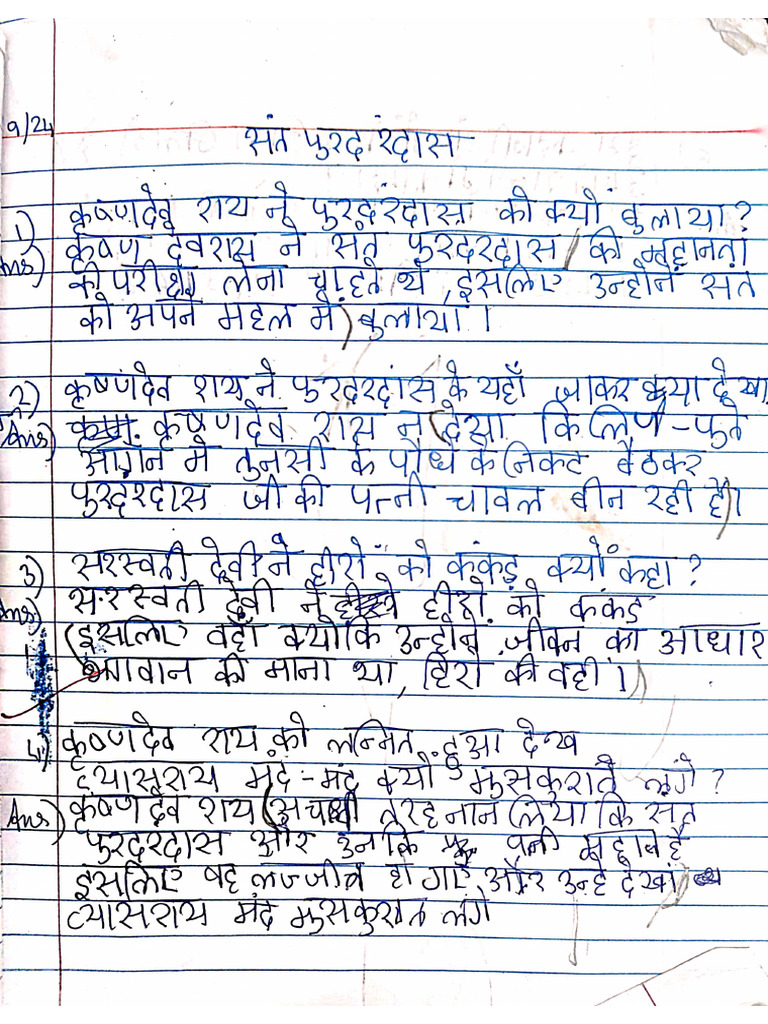 9/24
संत पुरदंरदास
1) कृष्णदेव राय ने पुरदंरदास को क्यों बुलाया?
Ans) कृष्ण देवराय ने संत पुरदरदास की महानता
की परीक्षा लेना चाहते थे, इसलिए उन्होंने संत
को अपने महल में बुलाया।
2) कृष्णदेव राय ने पुरदरदास के यहाँ जाकर क्या देखा
Ans) कृष्णदेव राय ने देखा कि लिपे-पुते
आंगन में तुलसी के पौधे के निकट बैठकर
पुरदंरदास जी की पत्नी चावल बीन रही है।
3) सरस्वती देवी ने हीरों को कंकड़ क्यों कहा?
Ans) सरस्वती देवी ने हीरो को ककड
इसलिए कहाँ क्योकि उन्होंने जीवन का आधार
भगवान को माना था, हिरो को नहीं।
4) कृष्णदेव राय को लज्जित हुआ देख
व्यासराय मंद-मंद क्यों मुसकुराने लगे?
Ans) कृष्णदेव राय तरह लिया कि संत
पुरदरदास और उनकि पत्नी महान है
इसलिए वह लज्जीत हो गए और उन्हे देखा
व्यासराय मंद मुसकुराने लगे